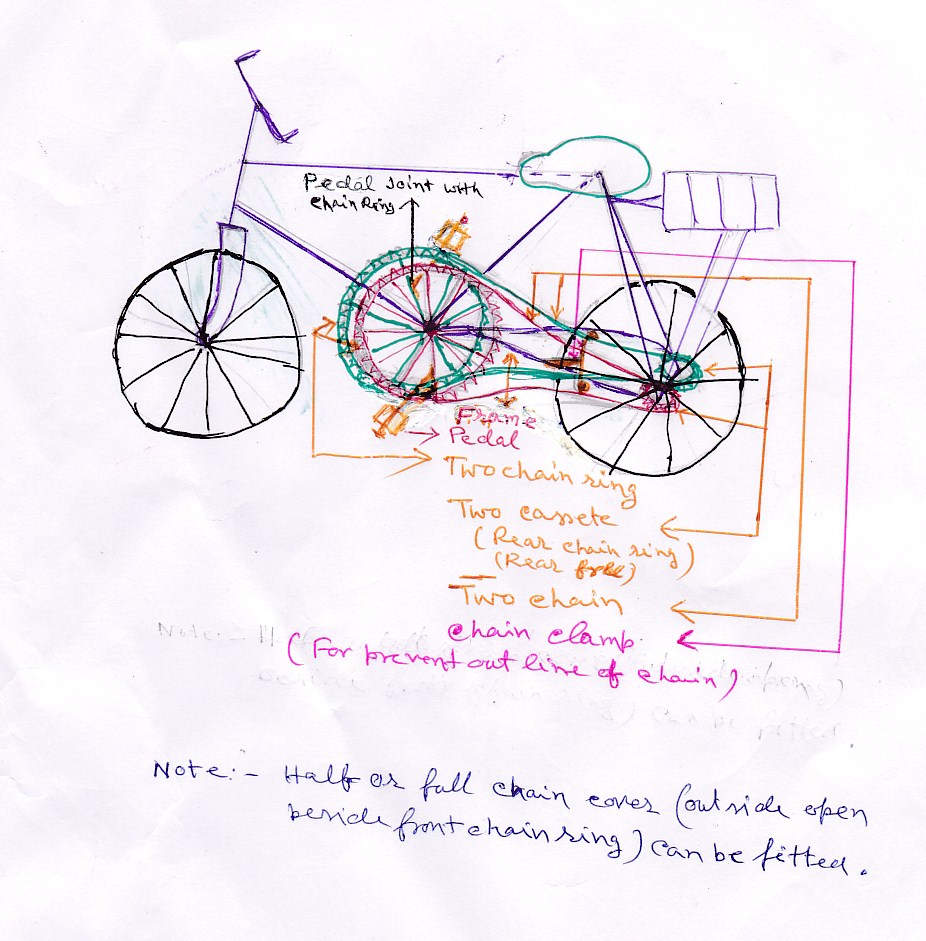 Pedal Joint with
chain Ring
Frame
Pedal
Two chain ring
Two cassete
(Rear chain ring)
(Rear free)
Two chain
chain clamp.
(For prevent out line of chain)
Note:- Half or full chain cover (outside open
beside front chain ring) can be fitted.